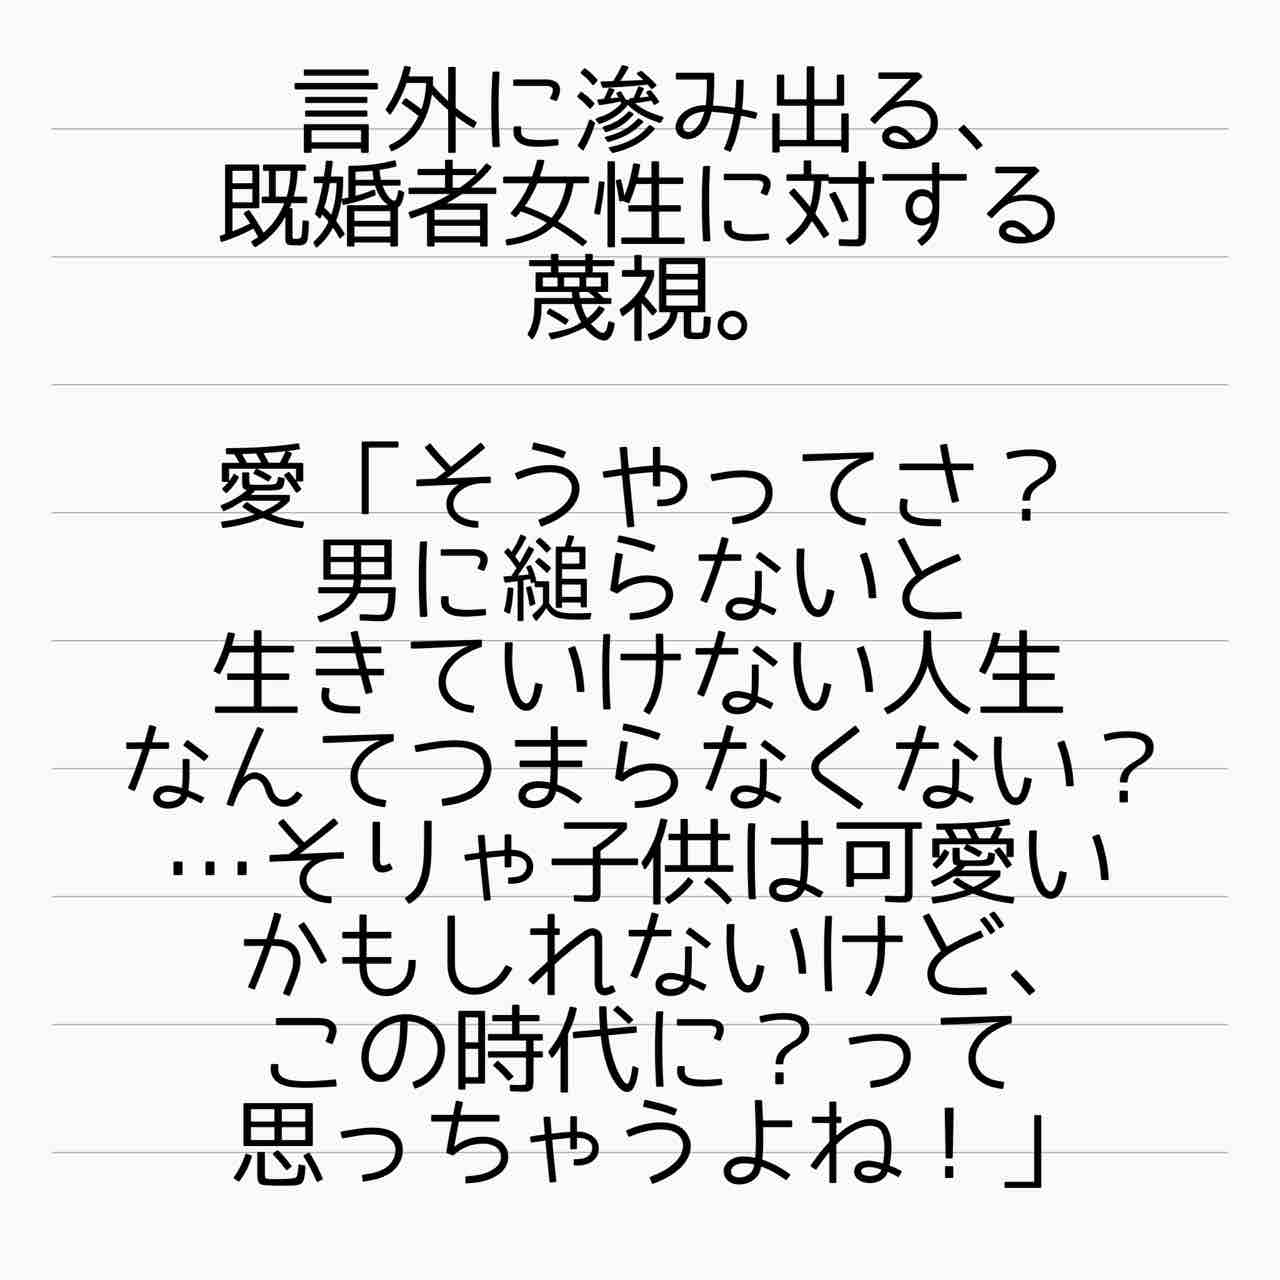 言外に滲み出る、
既婚者女性に対する
蔑視。
愛「そうやってさ？
男に縋らないと
生きていけない人生
なんてつまらなくない？
…そりゃ子供は可愛い
かもしれないけど、
この時代に？って
思っちゃうよね！」